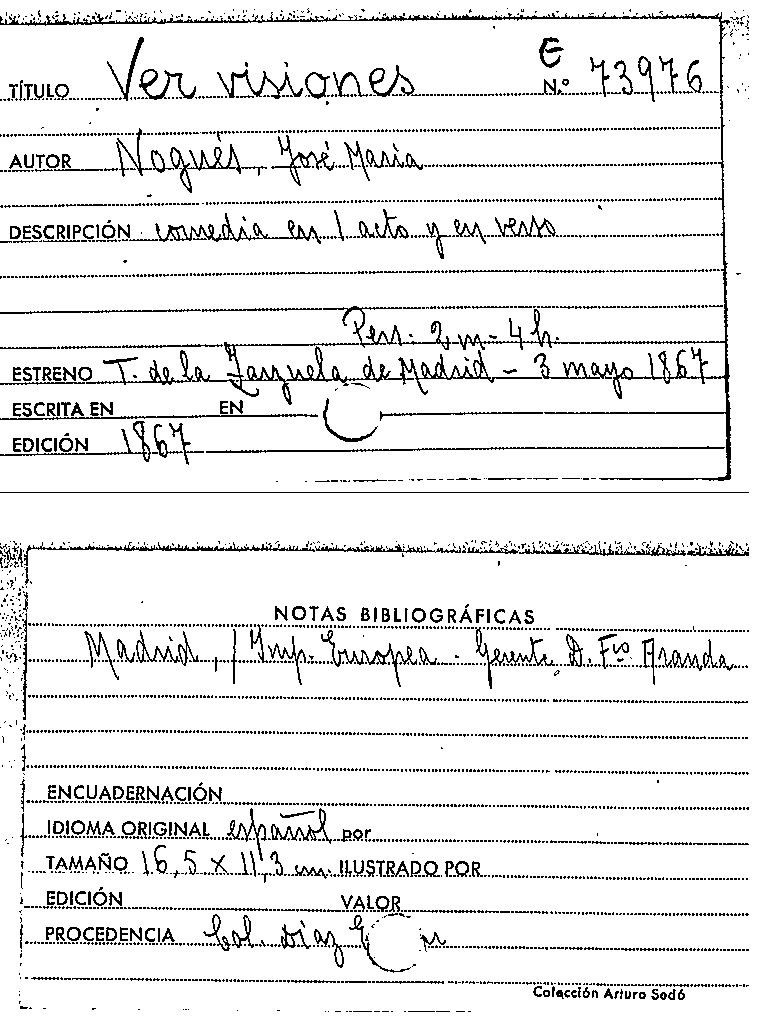 E
TÍTULO Ver visiones N.º 73976
AUTOR Nogués, José María
DESCRIPCIÓN comedia en 1 acto y en verso
Pers. 2 m - 4 h.
ESTRENO T. de la Zarzuela de Madrid - 3 mayo 1867
ESCRITA EN EN
EDICIÓN 1867
NOTAS BIBLIOGRÁFICAS
Madrid, / Imp. Europea - Gerente D. Fco Aranda
ENCUADERNACIÓN
IDIOMA ORIGINAL español por
TAMAÑO 16,5 x 11,3 cm. ILUSTRADO POR
EDICIÓN VALOR
PROCEDENCIA Col. Díaz
Colección Arturo Sedó